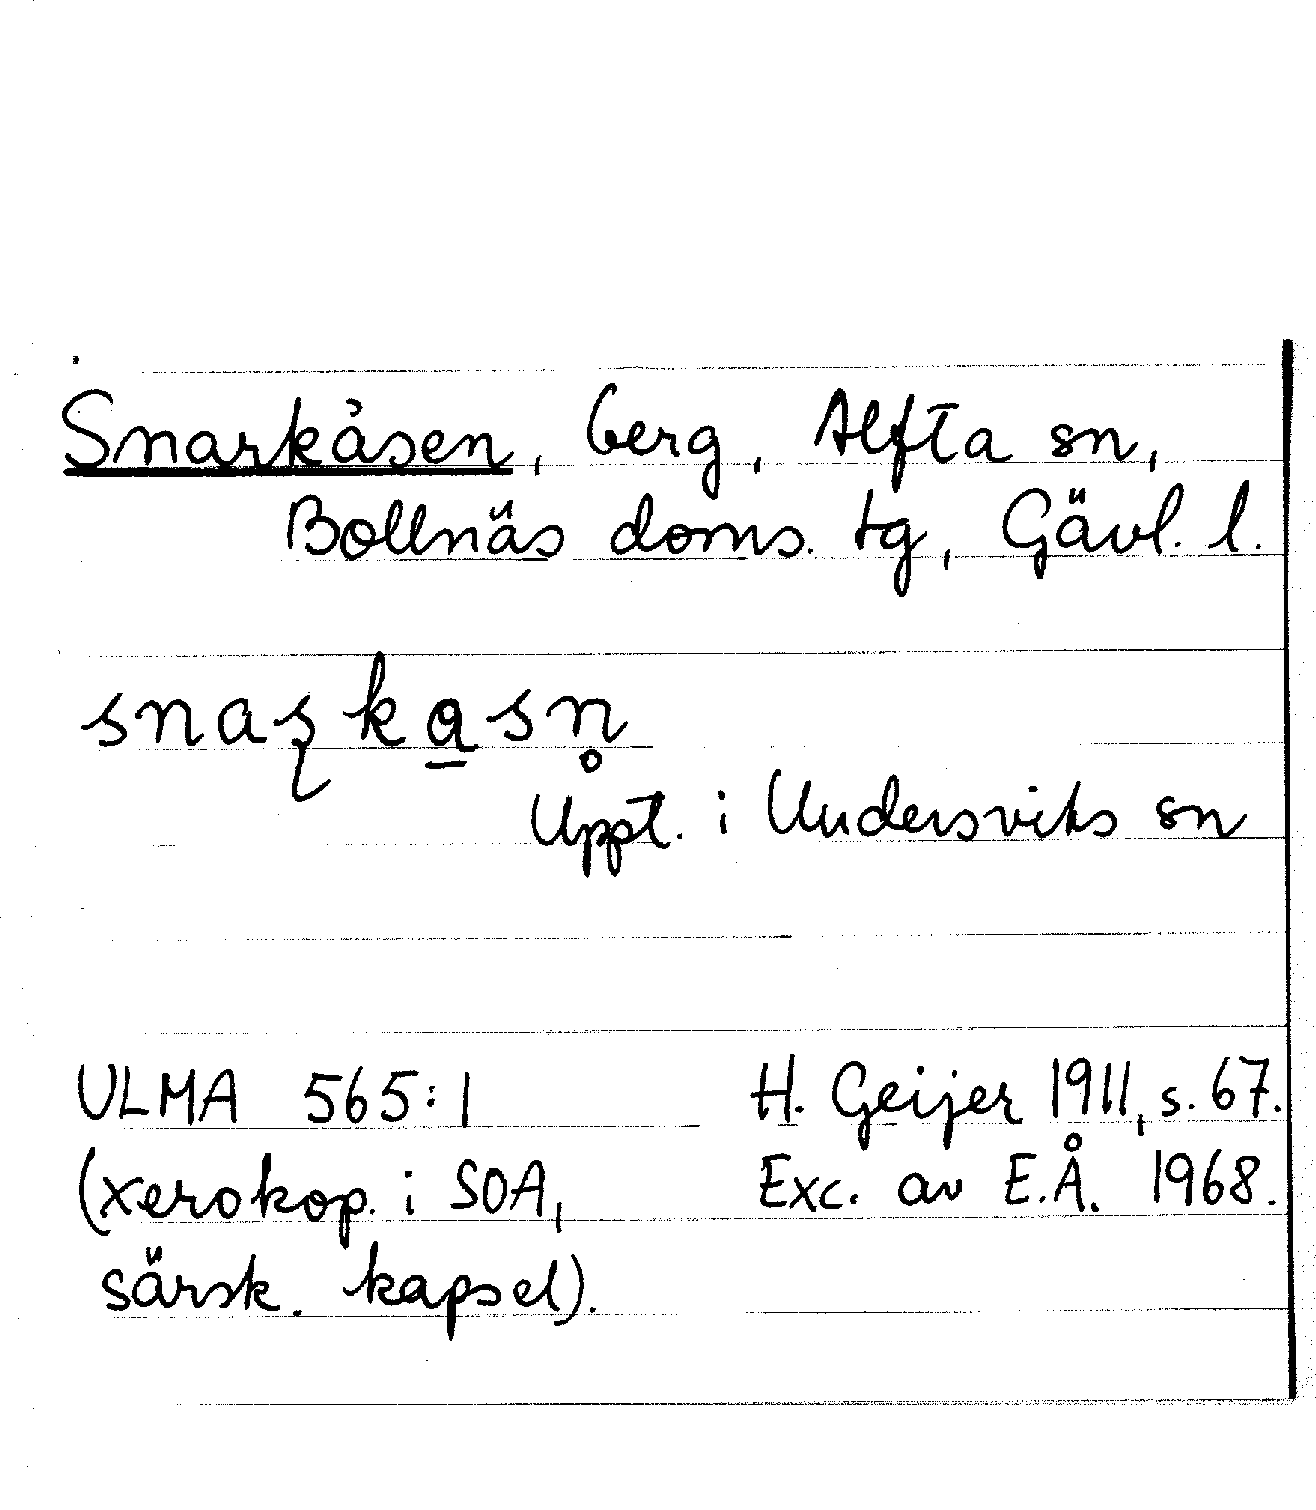 Snarkåsen, berg, Alfta sn,
Bollnäs doms. tg, Gävl. l.
snaʂka̲sn̥
Uppt. i Undersviks sn
ULMA 565:1 H. Geijer 1911, s. 67.
(xerokop. i SOA, Exc. av E.Å. 1968.
särsk. kapsel).